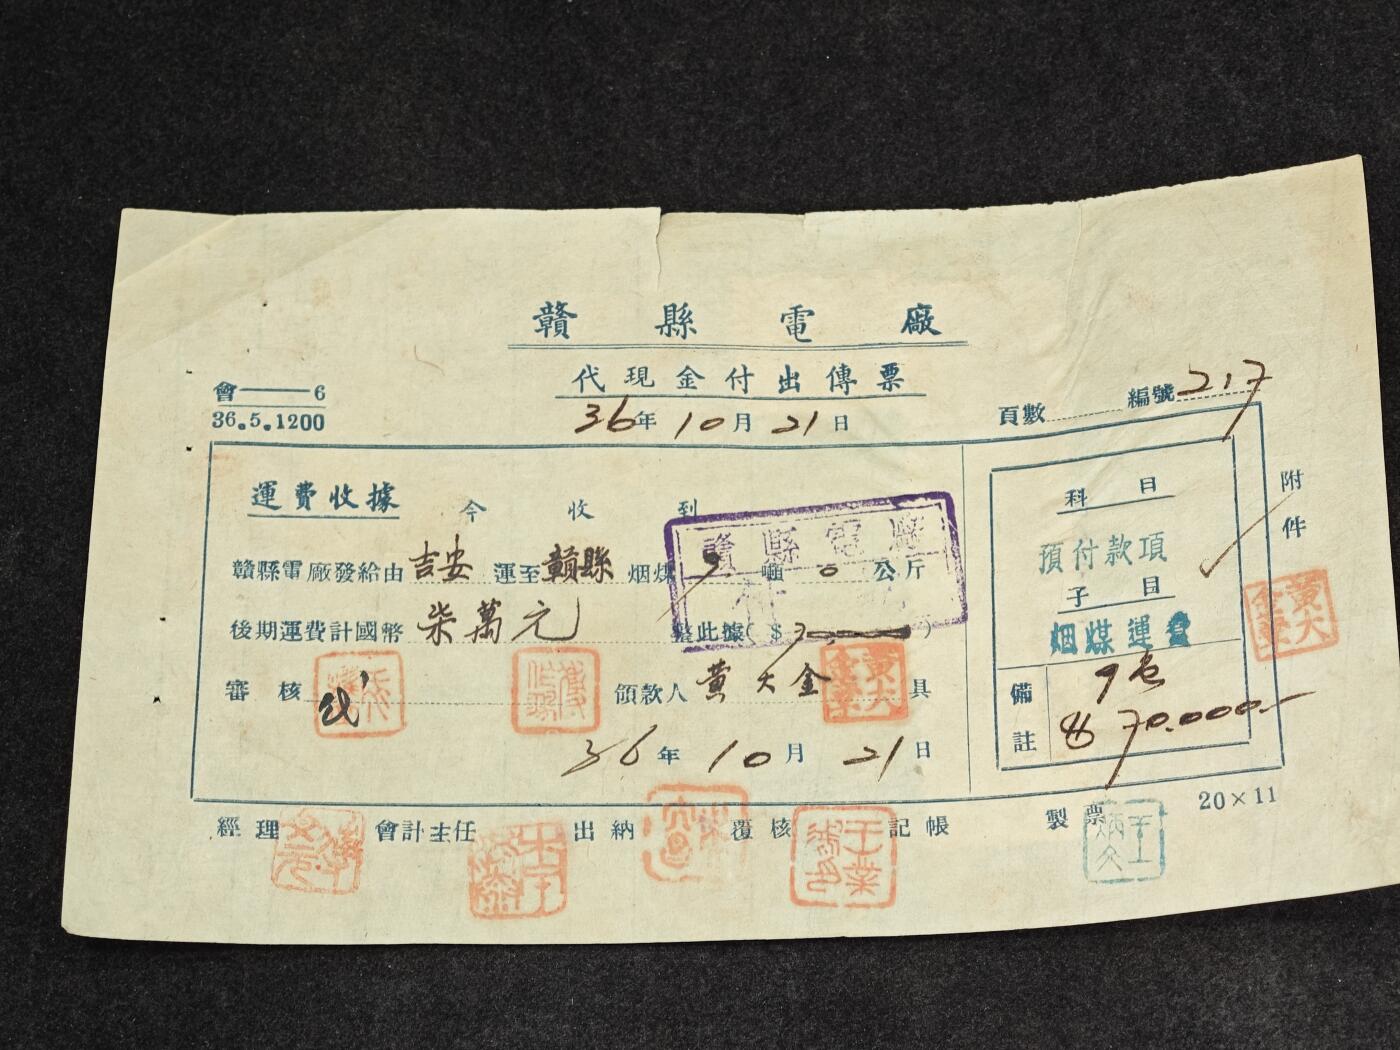 贛縣電廠
代現金付出傳票
會——6
36.5.1200
36年10月21日
頁數 編號217
運費收據
今收到
贛縣電廠發給由吉安運至贛縣烟煤9噸0公斤
後期運費計國幣柒萬元整此據($7 )
審核 代 領款人 黃大金 具
36年10月21日
贛縣電廠
付訖
科目
預付款項
子目
烟煤運費
備註
$70.000.-
附件
黃大
經理 會計主任 出納 覆核 記帳 製票
20×11